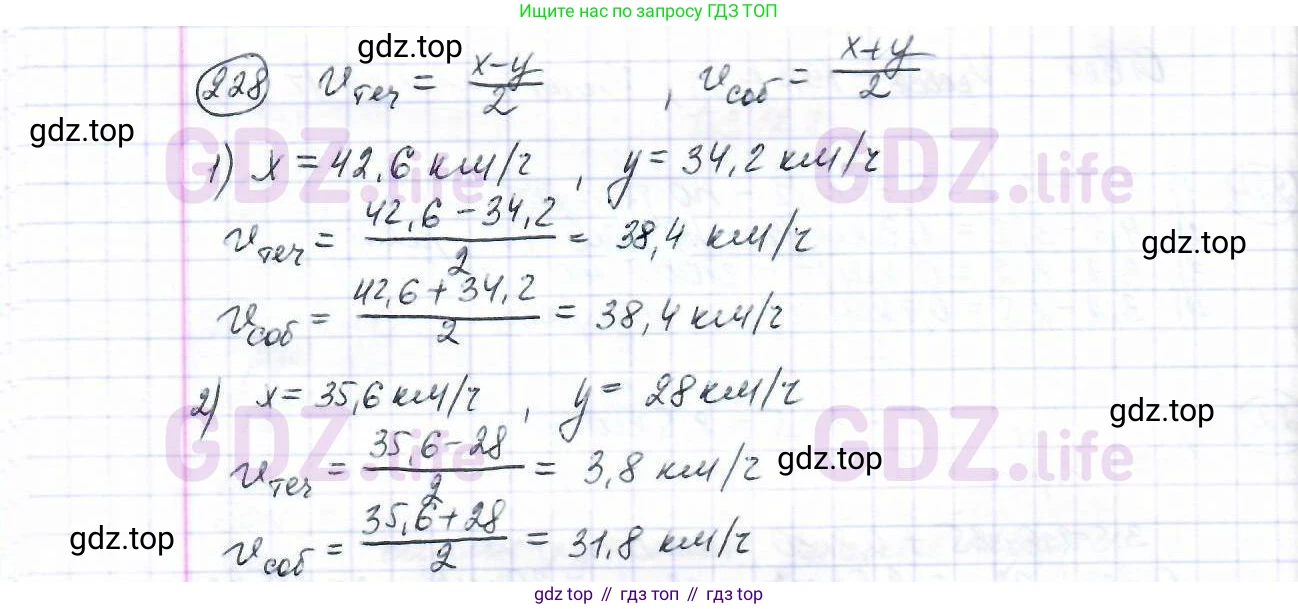 Ищите нас по запросу ГДЗ ТОП
gdz.top
228 vтеч = (x-y)/2 , vсоб = (x+y)/2
gdz.top
GDZ.life GDZ.life
1) x = 42,6 км/ч , y = 34,2 км/ч
vтеч = (42,6 - 34,2)/2 = 38,4 км/ч
gdz.top
vсоб = (42,6 + 34,2)/2 = 38,4 км/ч
2) x = 35,6 км/ч , y = 28 км/ч
gdz.top
GDZ.life GDZ.life
vтеч = (35,6 - 28)/2 = 3,8 км/ч
gdz.top
gdz.top
vсоб = (35,6 + 28)/2 = 31,8 км/ч
gdz top // гдз топ // gdz top